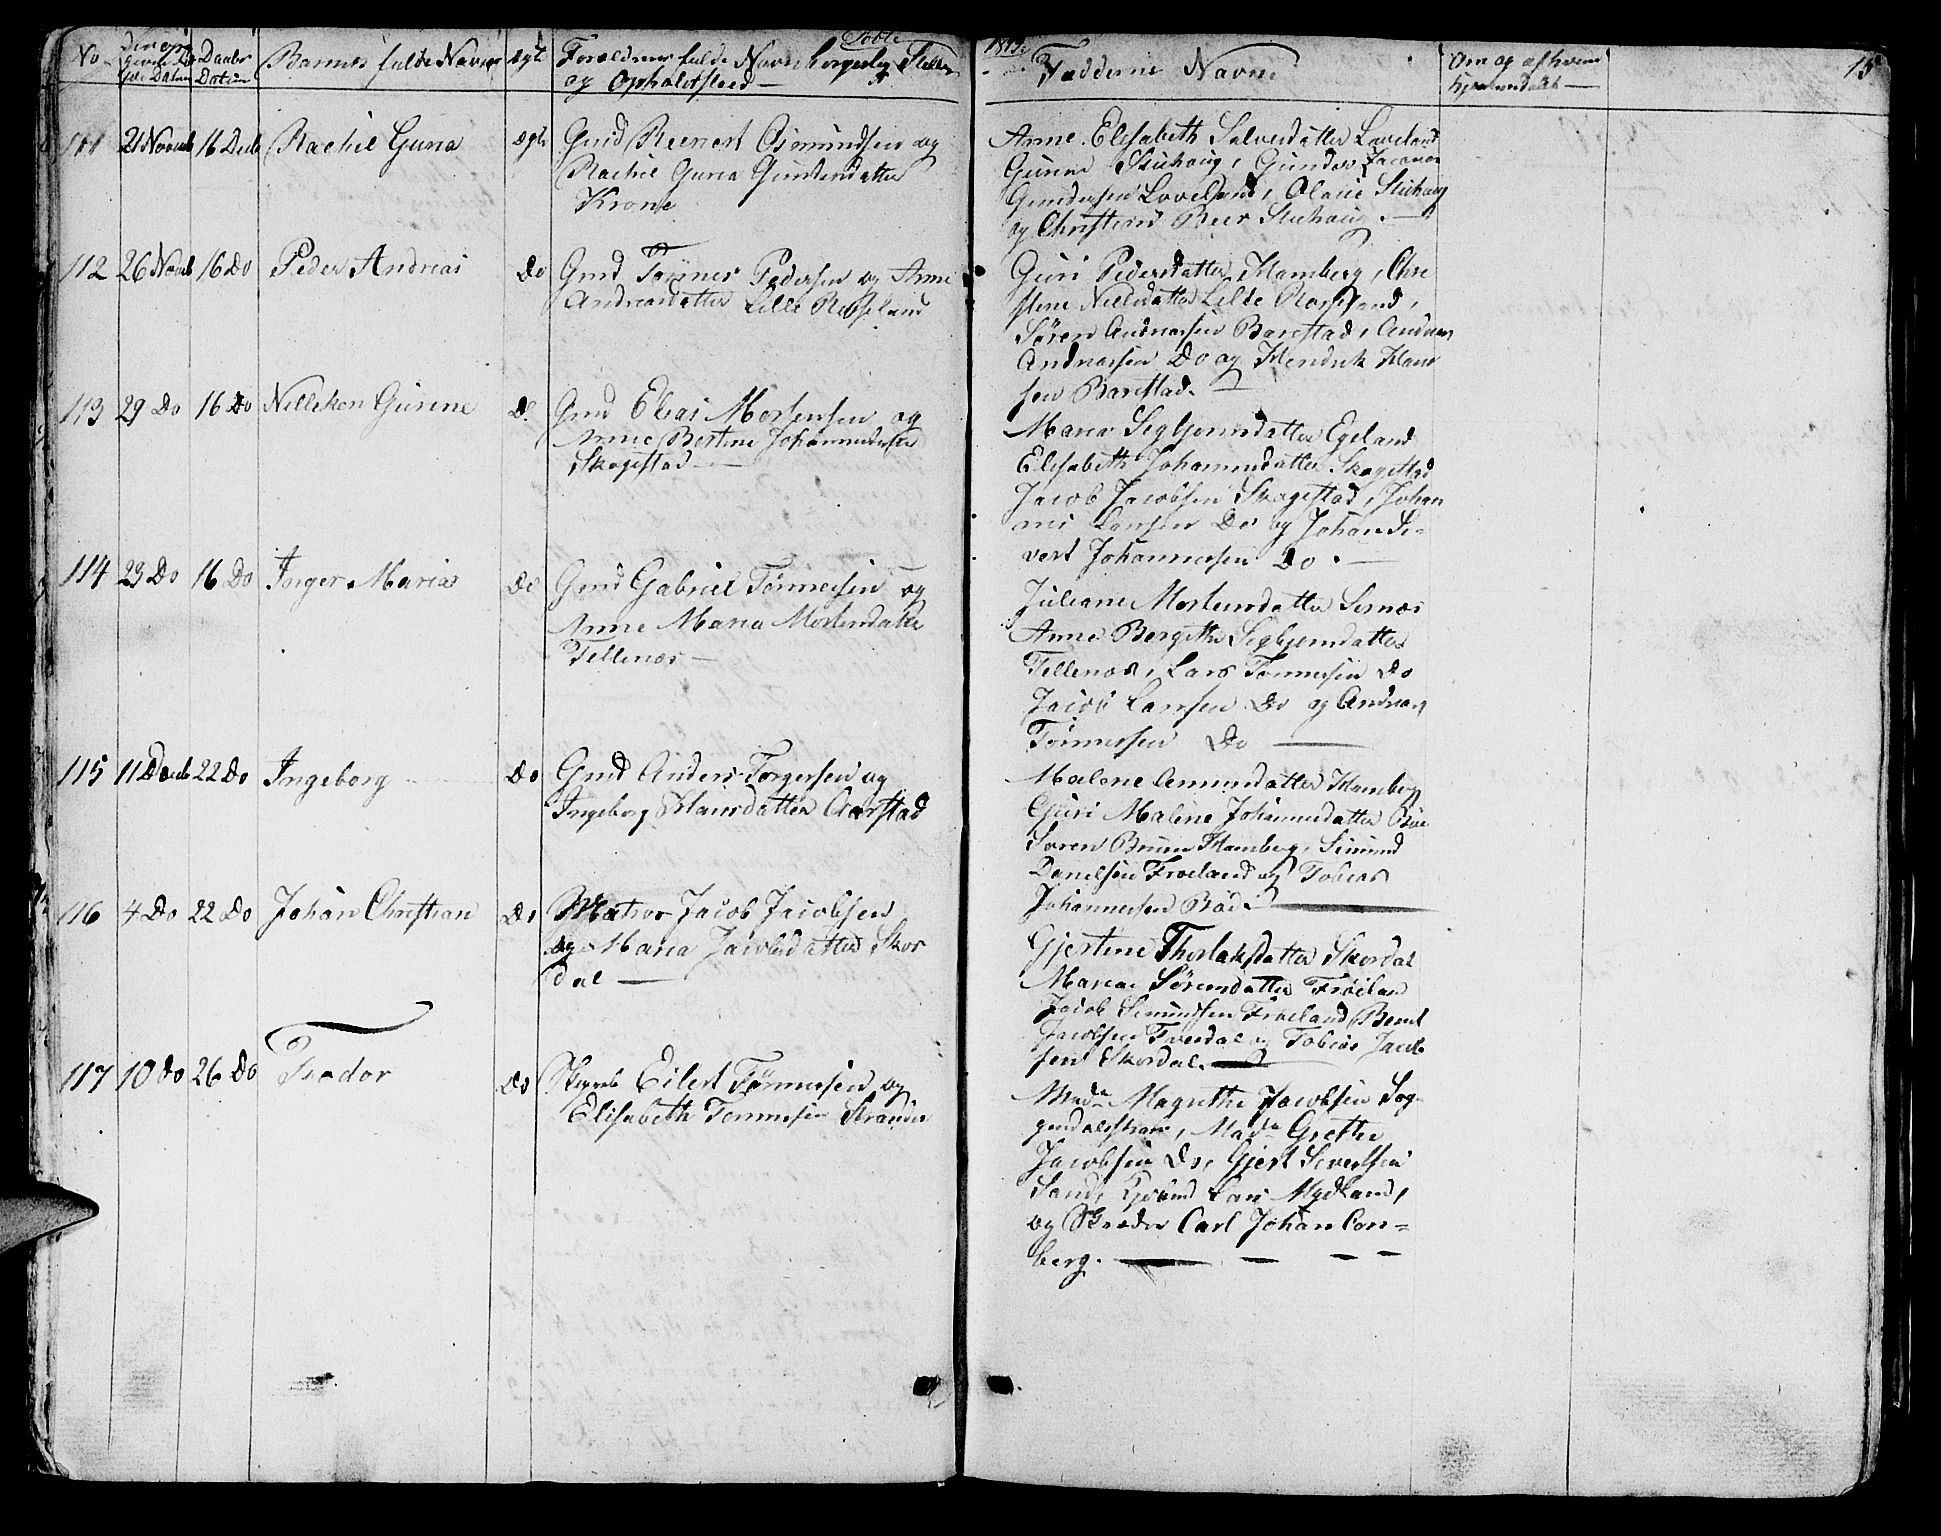 No Daabs Barnets fulde Navn Ægte Forældrenes fulde Navn borgerlig Stilling
og Opholdsted
Fadderne Navne
Om og af hvem
15
111 21 Novenb 16 Decb Rachil Guria Ægte Gmd Reenert Osmundsen og
Rachil Guria Gundersdatter
Krone
Anne Elisabeth Salvesdatter Loveland
Gurine Stuhaug, Gunder
Gundersen Loveland, Olaus Stuhaug
og Christian Beer Stuhaug.
112 26 Novb 16 Do Peder Andreas Do Gmd Tönnes Pedersen og Anne
Andreasdatter Lille Rebsland
Guri Pedersdatter Hamberg, Chri
stine Nielsdatter Lille
Sören Andreassen Barstad, Andreas
Andreassen Do og Hendrik Han
sen Barstad.
113 29 Do 16 Do Nilliken Gurine Do Gmd Elias Mortensen og
Anne Bertine Johannesdatter
Skogestad
Maria Sigbjörnsdatter Egeland
Elisabeth Johannesdatter Skogestad
Jacob Jacobsen Skogestad, Johan
nes Larsen Do og Johan Si-
vert Johannessen Do.
114 23 Do 16 Do Inger Maria Do Gmd Gabriel Tönnessen og
Anne Maria Mortensdatter
Tellenæs
Juliane Mortensdatter Sirnæs
Anne Bergithe Sigbjörnsdatter
Tellenæs, Lars Tönnessen Do
Jacob Larsen Do og Andreas
Tönnessen Do
115 11 Decb 22 Do Ingeborg Do Gmd Anders Torgersen og
Ingeborg Hansdatter Aarstad
Malene Amundsdatter Hamberg
Guri Malene Johannesdatter Böe
Soren Bruun Hamberg, Simund
Danielsen Fröeland og Tobias
Johannessen Böe.
116 4 Do 22 Do Johan Christian Do Matros Jacob Jacobsen
og Maria Jacobsdatter Skor
dal
Gjertine Thorlaksdatter Skordal
Maria Sörensdatter Fröilan
Jacob Simundsen Fröeland, Bernt
Jacobsen Tversdal og Tobias Jacob
sen Skordal.
117 10 Do 26 Do Teodor Do Skyps Eilert Tönnessen og
Elisabeth Tönnessen Stranden
Made Magrethe Jacobsen Sog-
gendalsstrand, Made Grethe
Jacobsen Do, Gjert Sivertsen
Sand, Lars Mydland,
og Skræder Carl Johan Con-
berg.